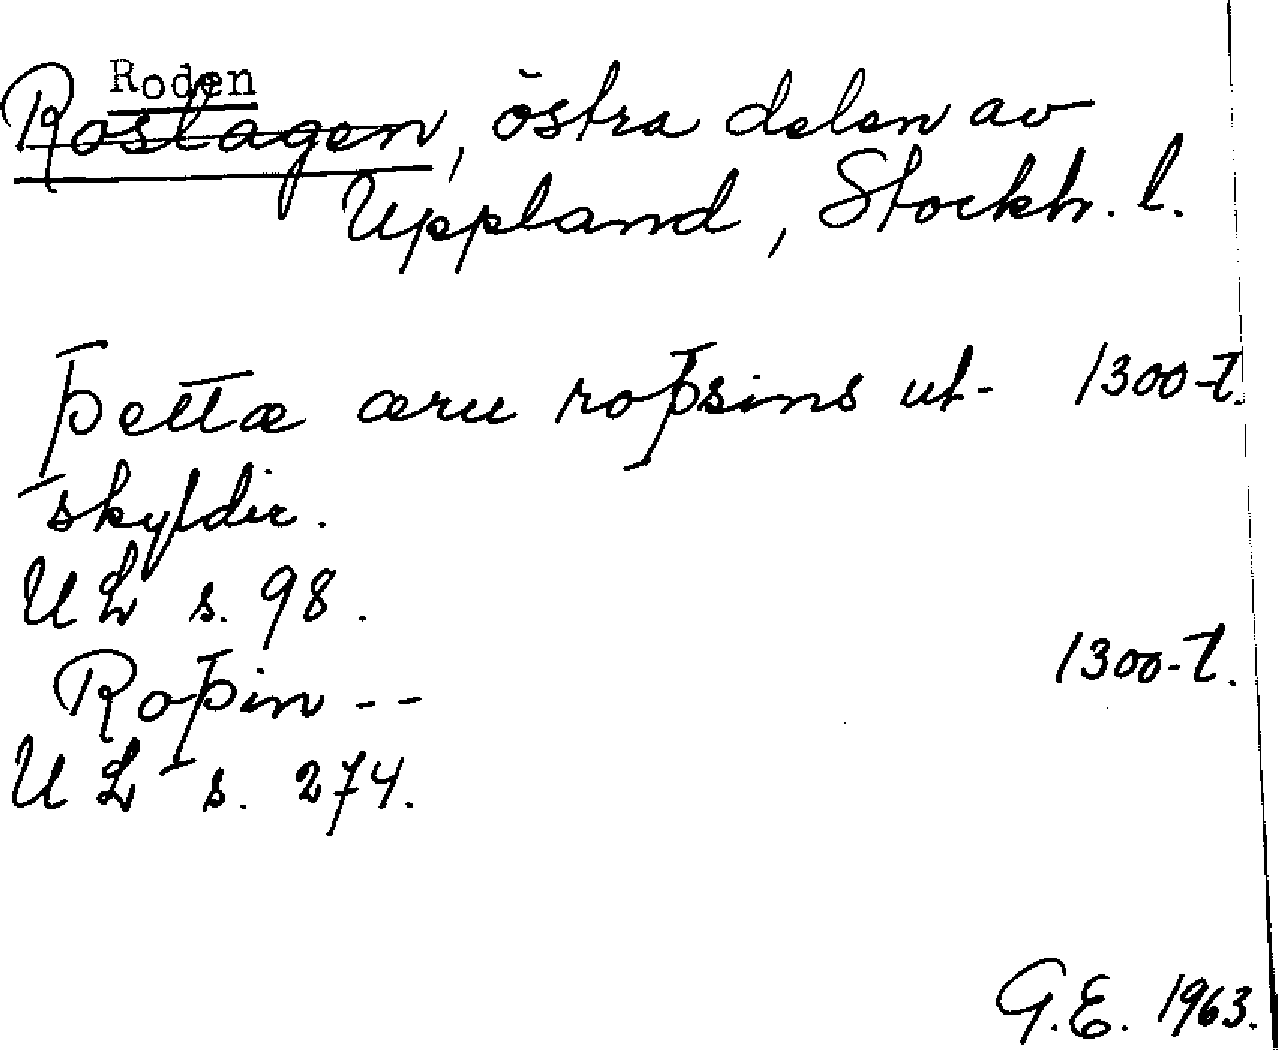 Roden
Roslagen, östra delen av
Uppland, Stockh. l.
þettæ æru roþsins ut- 1300-t.
skyldir.
UL s. 98.
Roþin -- 1300-t.
UL s. 274.
G.E. 1963.